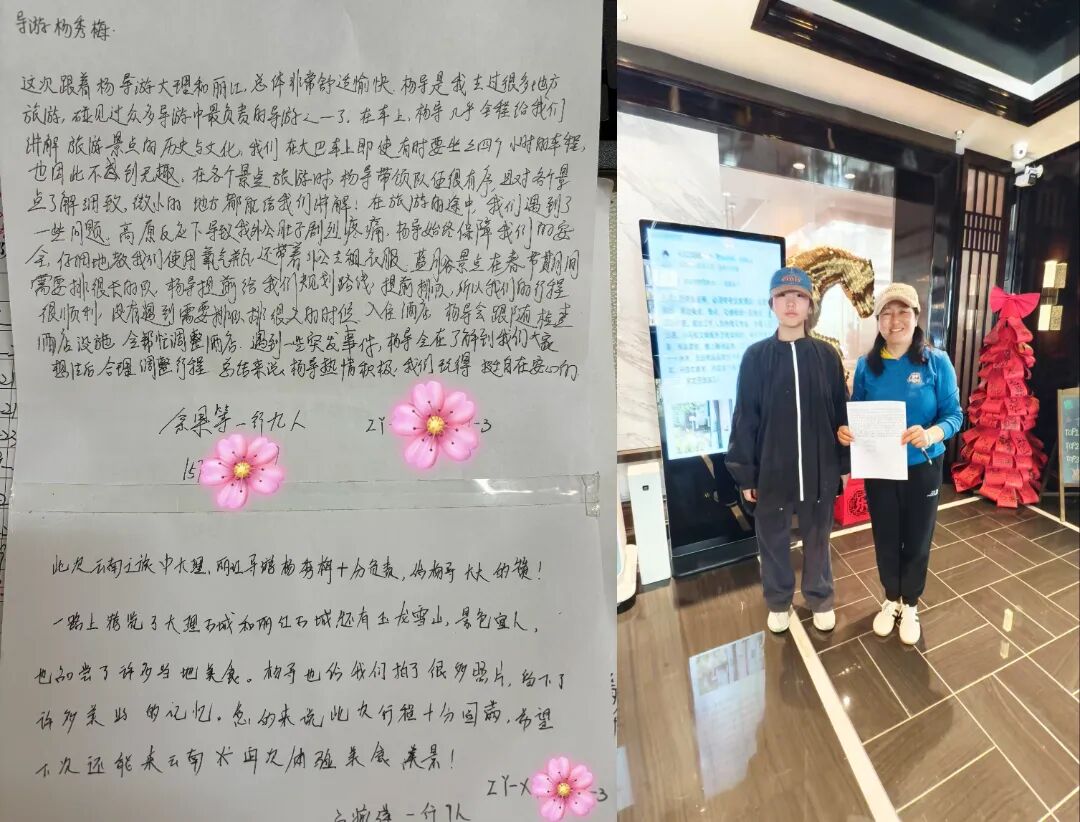 导游杨秀梅.
这次跟着杨导游大理和丽江,总体非常舒适愉快.杨导是我去过很多地方
旅游,碰见过众多导游中最负责的导游之一了.在车上,杨导几乎全程给我们
讲解旅游景点的历史与文化,我们在大巴车上即使有时要坐三四个小时的车程,
也因此不感到无趣.在各个景点旅游时,杨导带领队伍很有序,且对各个景
点了解细致,微小的地方都能给我们讲解!在旅游的途中,我们遇到了
一些问题,高原反应下导致我外公肚子剧烈疼痛,杨导始终保障我们的安
全,仔细地教我们使用氧气瓶,还带着外公去租衣服.蓝月谷景点在春节期间
需要排很长的队,杨导提前给我们规划路线,提前排队,所以我们的行程
很顺利,没有想到需要排队排很久的时候.入住酒店,杨导会跟随检查
酒店设施,会帮忙调整酒店.遇到一些突发事件,杨导会在了解到我们大家
想法后合理调整行程.总结来说杨导热情积极,我们玩得挺自在安心的
一行九人
ZY- -3
15
此次云南之旅中大理、丽江导游杨秀梅十分负责,为杨导大大的赞!
一路上游览了大理古城和丽江古城还有玉龙雪山,景色宜人,
也品尝了许多当地美食。杨导也给我们拍了很多照片,留下了
许多美好的记忆。总的来说此次行程十分圆满,希望
下次还能来云南再次体验美食美景!
ZY-X -3
一行
TOP1
TOP2
TOP3